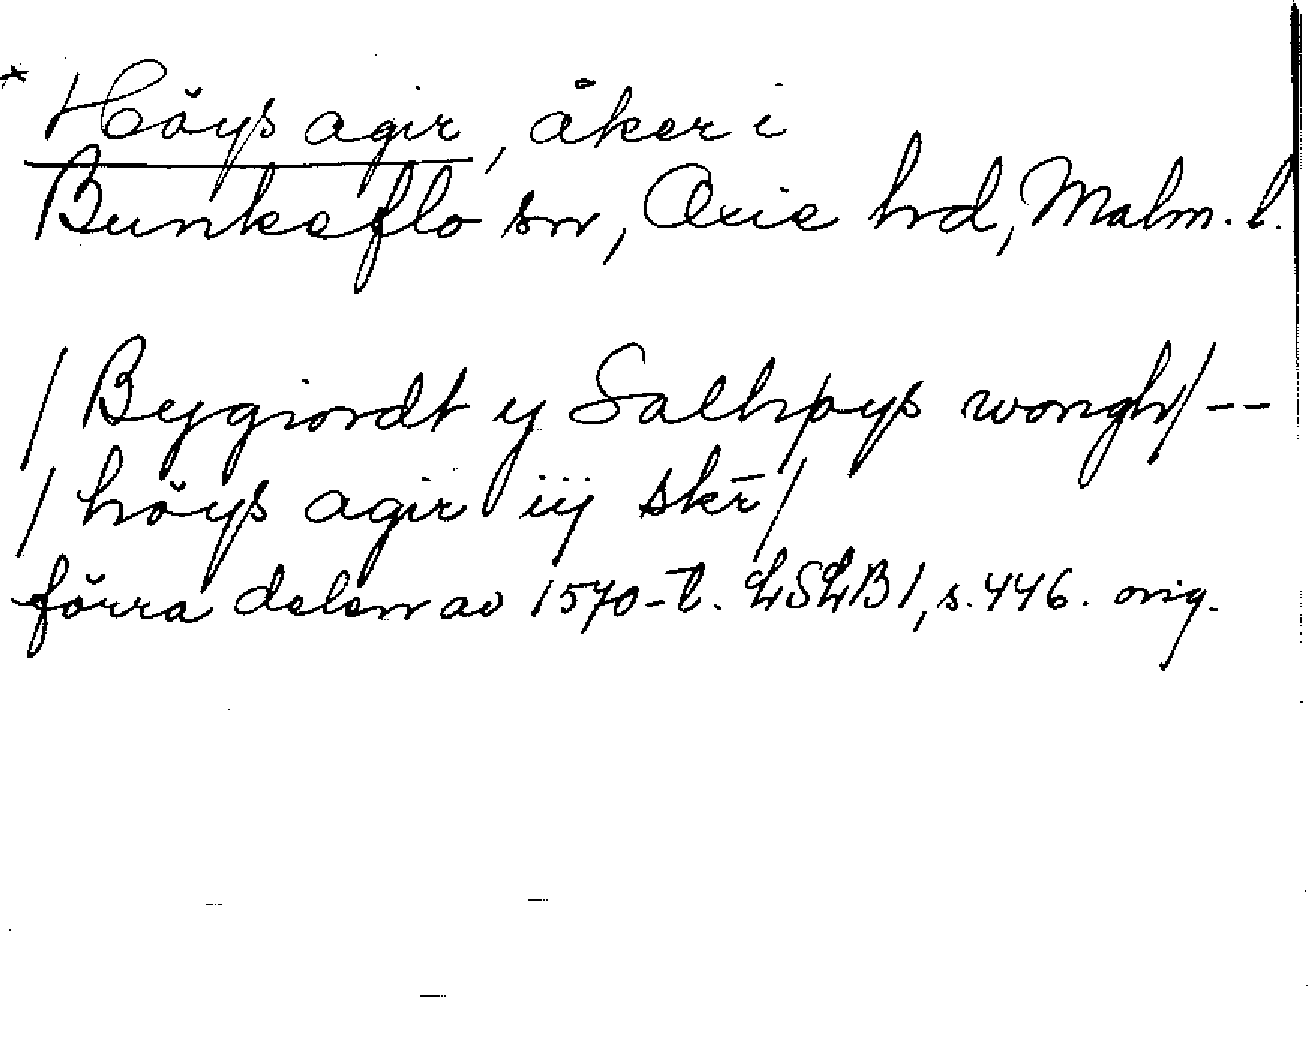 * Höys agir, åker i
Bunkeflo sn, Oxie hrd, Malm. l.
/ Bygiordt y Salhøys wongh / --
/ höys agir iij skr̄ /
förra delen av 1570-t. LSLB 1, s. 446. orig.